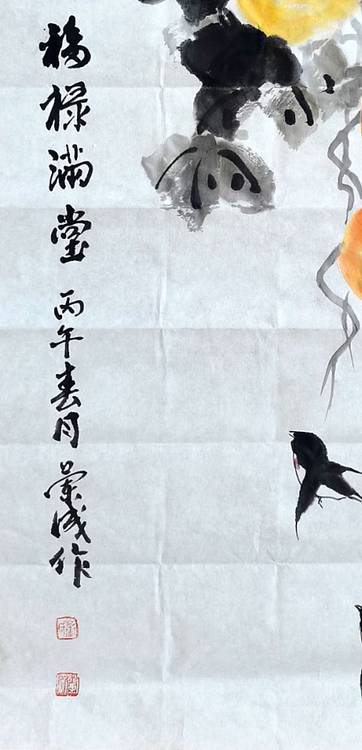 福禄满堂丙午春月荣成作